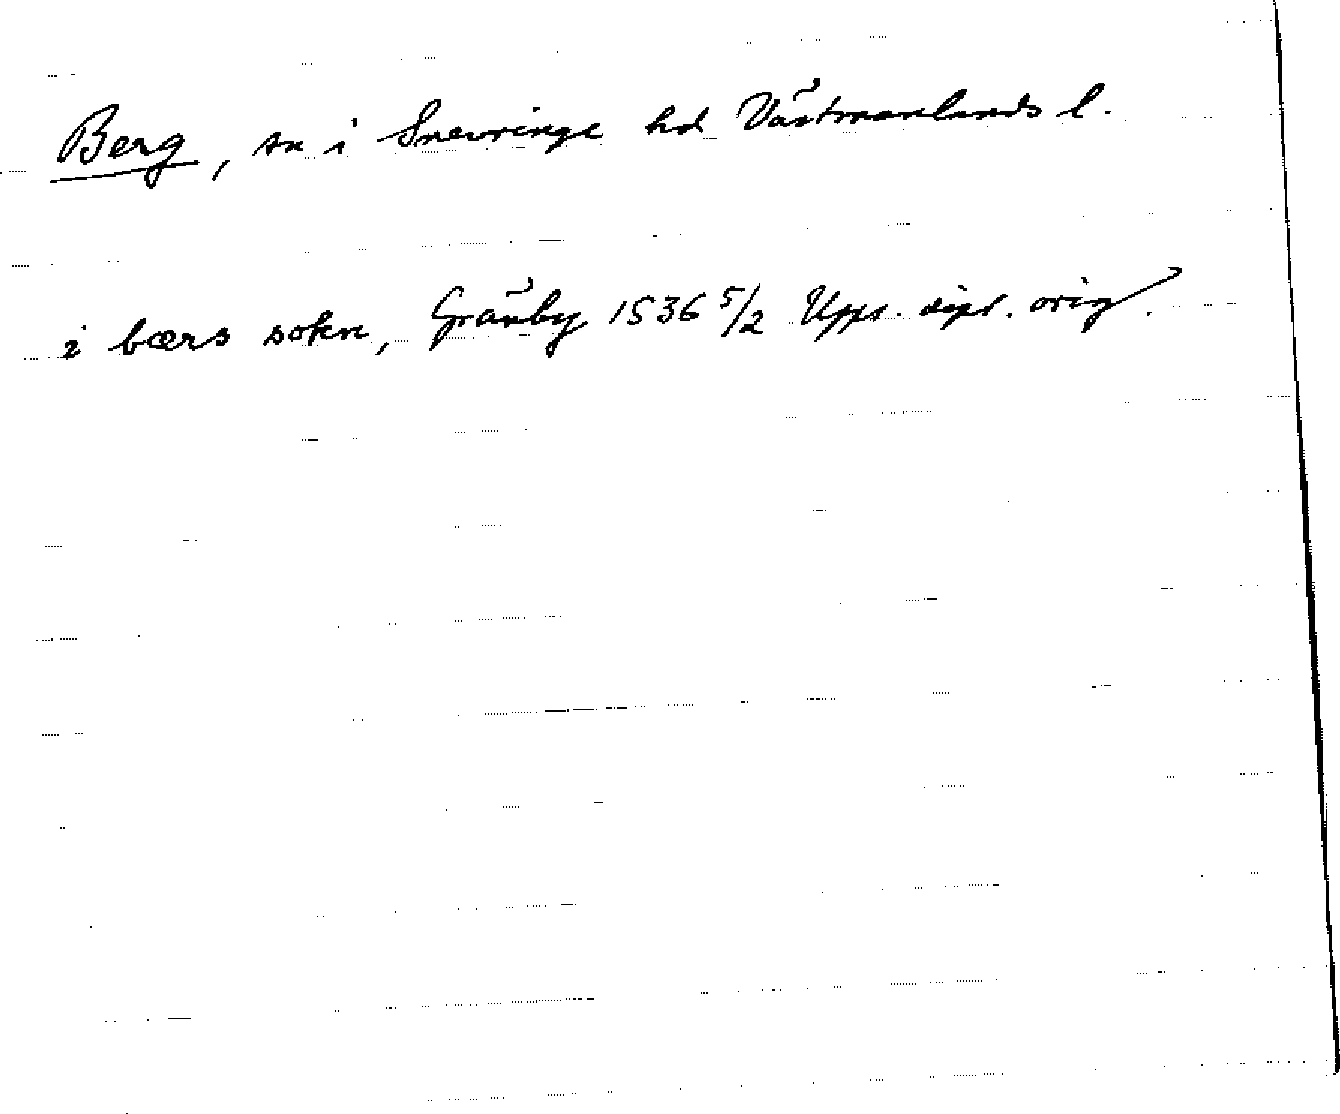 Berg, sn i Snevringe hd Västmanlands l.
i bærs sokn, Gränby 1536 5/2 Upps. dipl. orig.